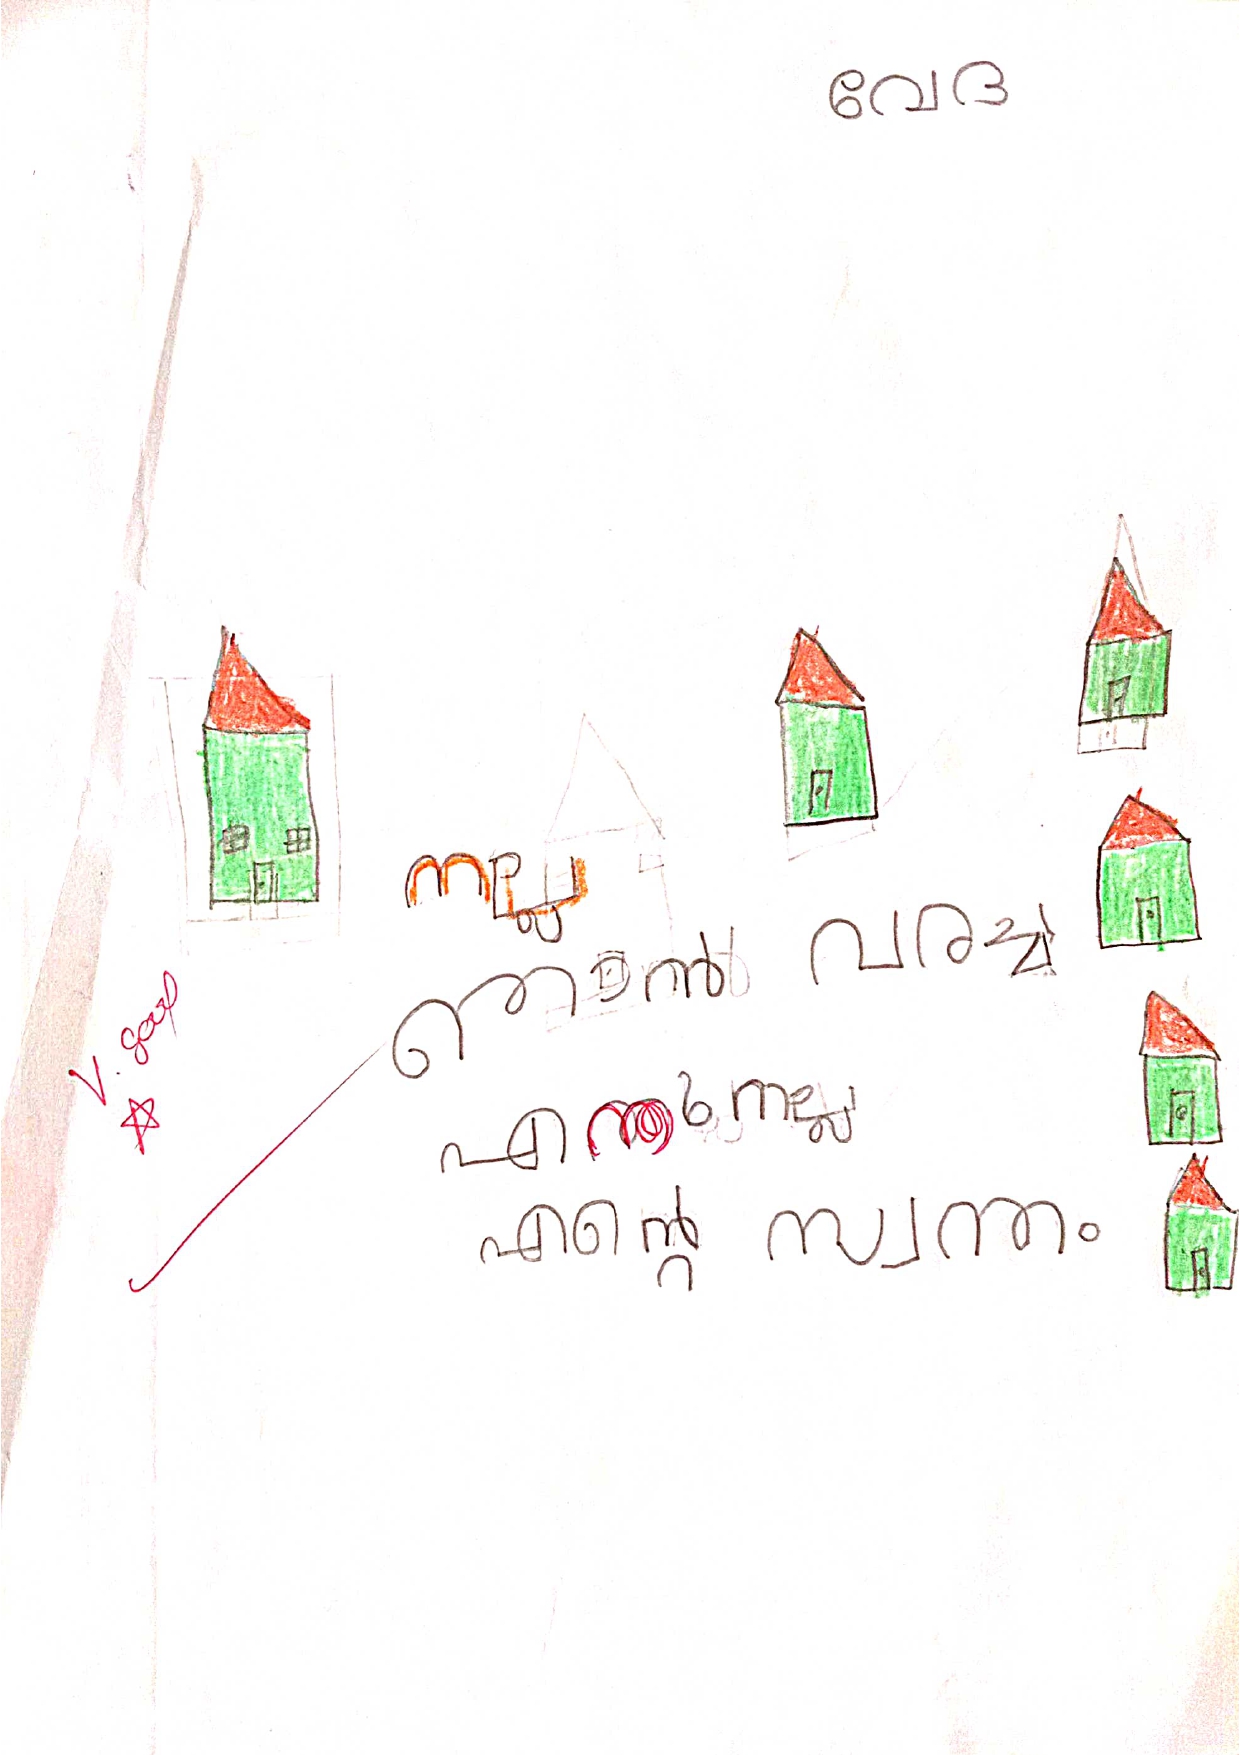 വേദ
നല്ല
ഞാൻ വരച്ച
എന്തു നല്ല
എന്റെ സ്വന്തം
V. good